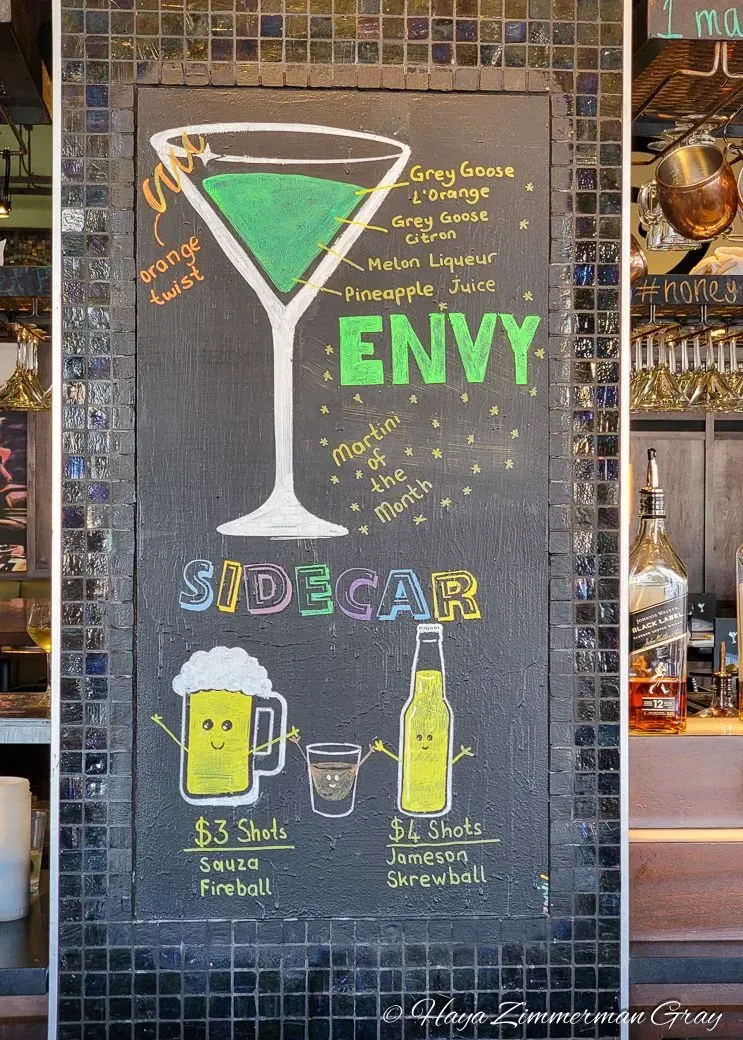 1 ma
Grey Goose
L'Orange
Grey Goose
Citron
Melon Liqueur
Pineapple Juice
orange
twist
ENVY
#honey
Martini
of
the
Month
SIDECAR
JOHNNIE WALKER
BLACK LABEL
12
$3 Shots
Sauza
Fireball
$4 Shots
Jameson
Skrewball
© Haya Zimmerman Gray